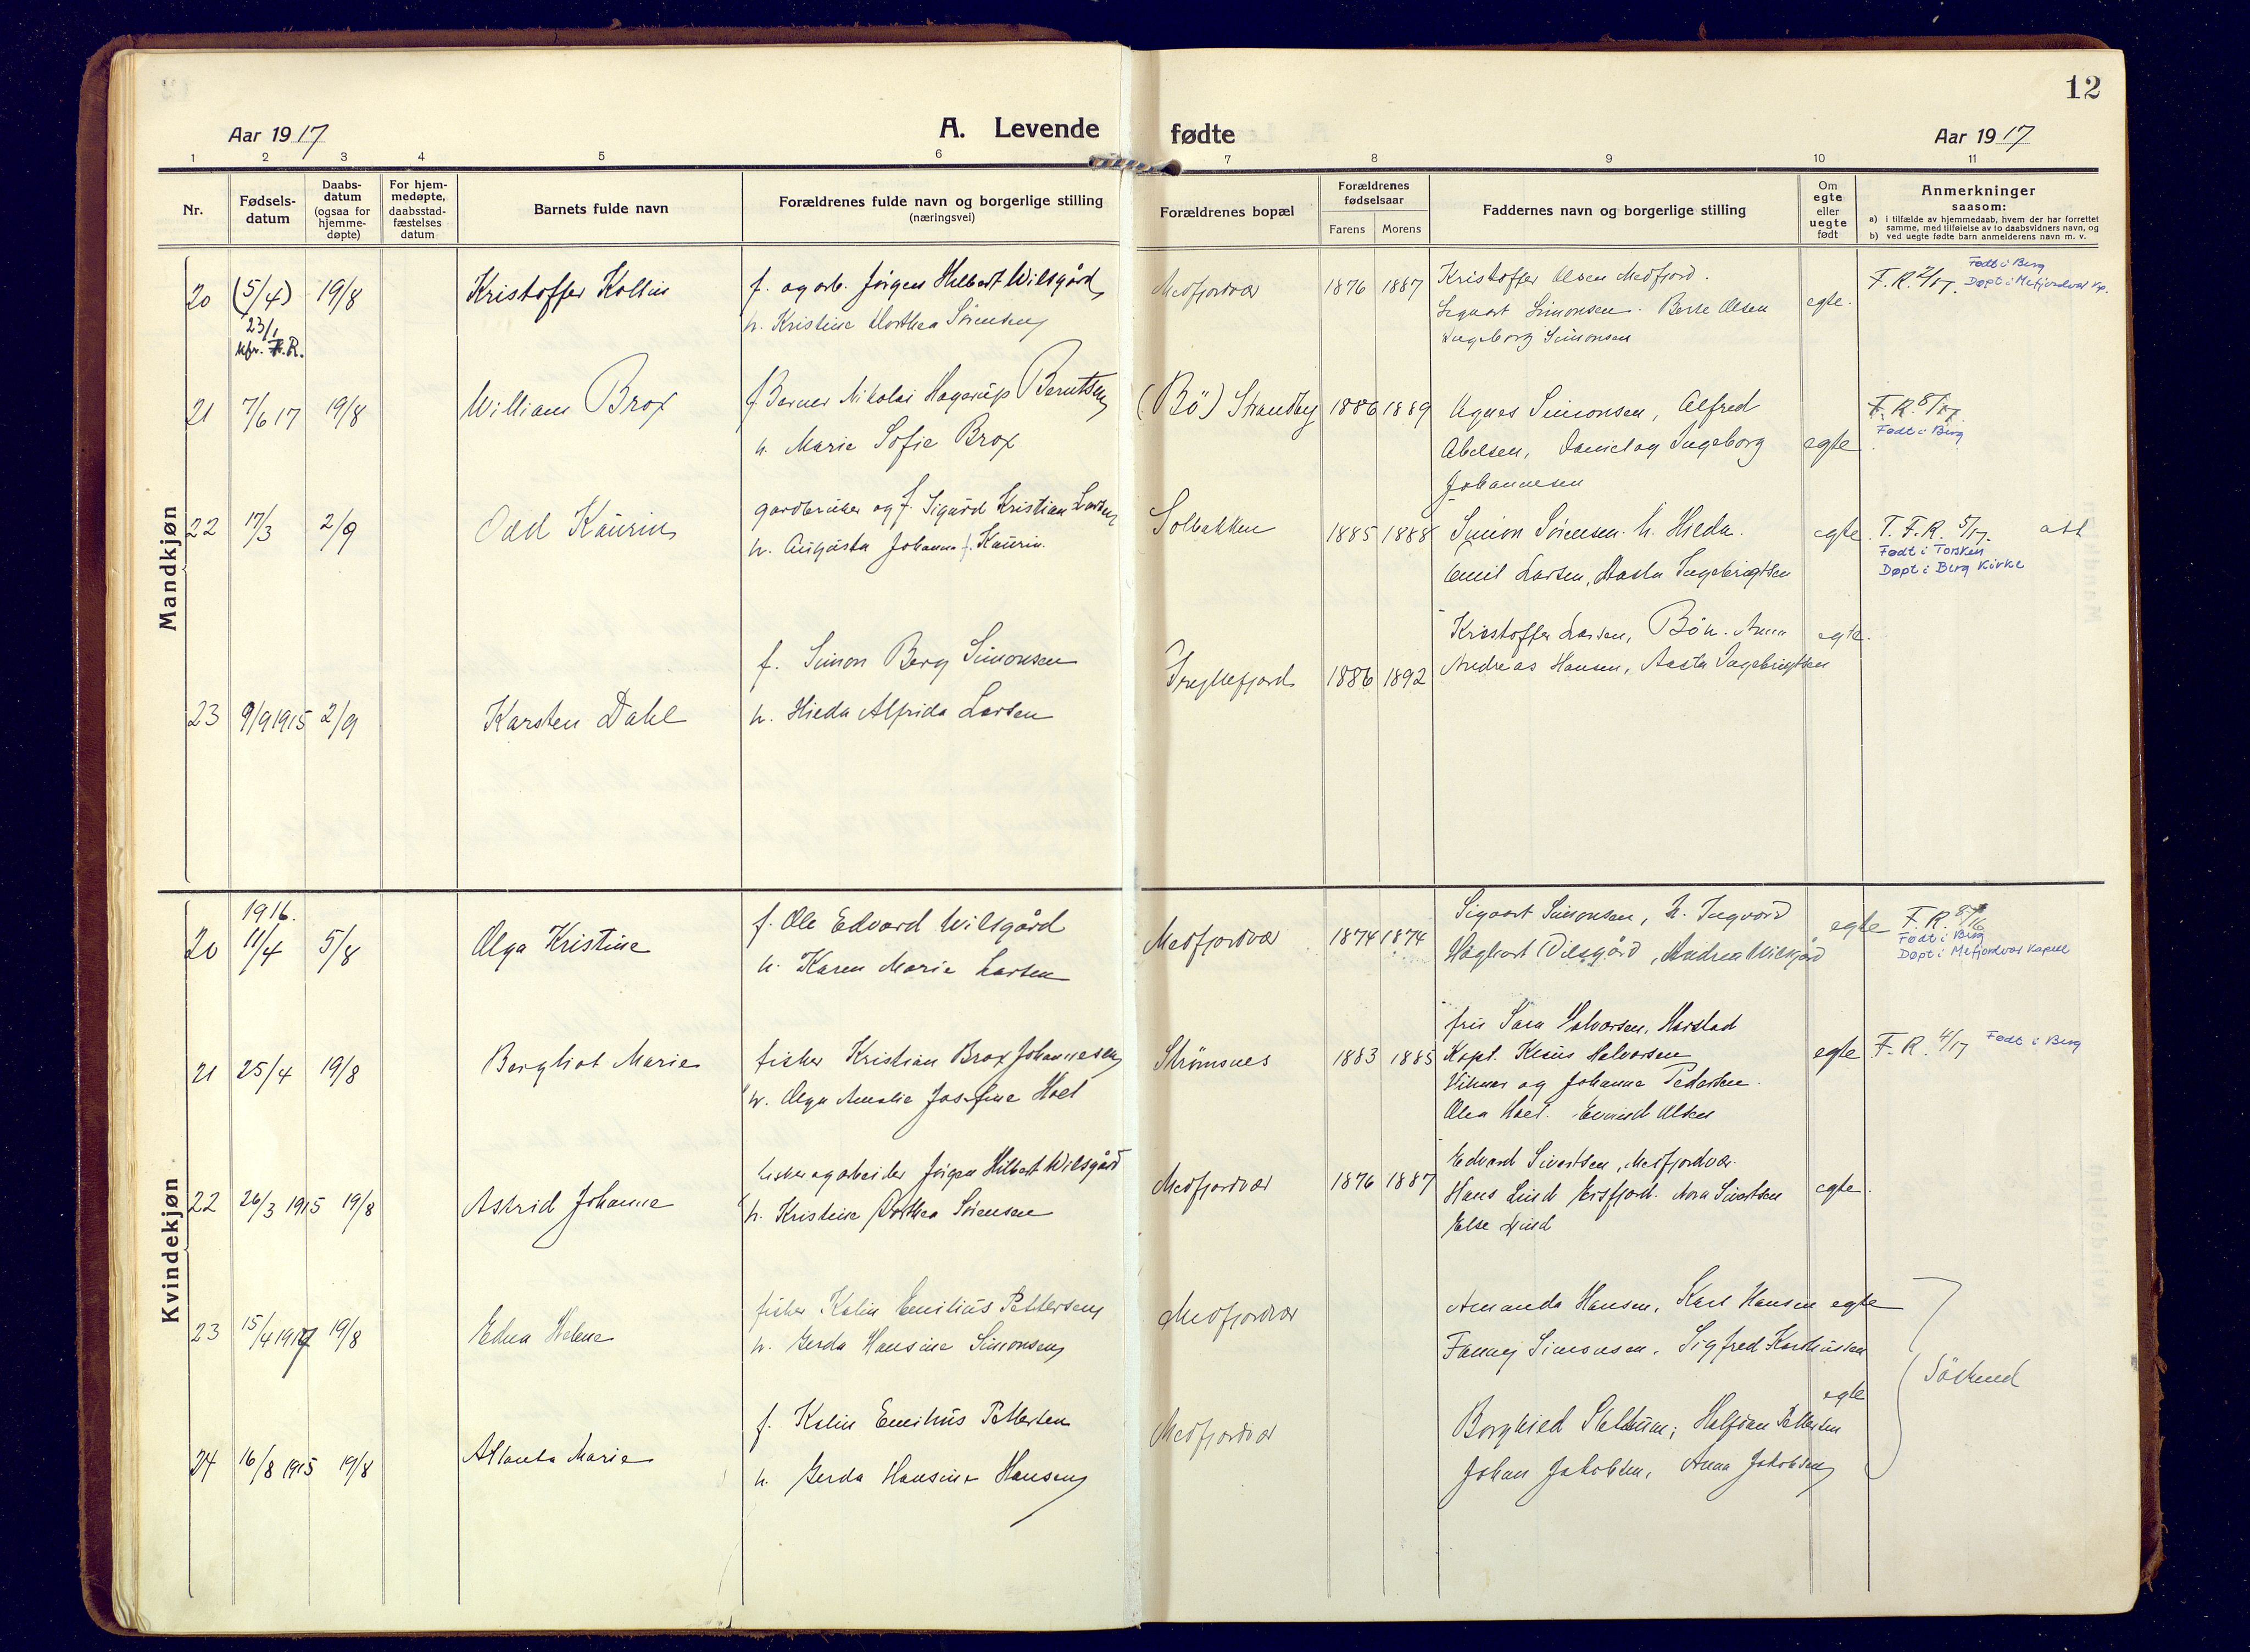 12
Aar 1917
A. Levende fødte
Aar 1917
1 2 3 4 5 6 7 8 9 10 11
Nr.
Fødsels-
datum
Daabs-
datum
(ogsaa for
hjemme-
døpte)
For hjem-
medøpte,
daabsstad-
fæstelses
datum
Barnets fulde navn
Forældrenes fulde navn og borgerlige stilling
(næringsvei)
Forældrenes bopæl
Forældrenes
fødselsaar
Farens Morens
Faddernes navn og borgerlige stilling
Om
egte
eller
uegte
født
Anmerkninger
saasom:
a) i tilfælde av hjemmedaab, hvem der har forrettet
samme, med tilføielse av to daabsvidners navn, og
b) ved uegte fødte barn anmelderens navn m. v.
Mandkjøn
20 (5/4) 19/8
23/1
kfr. F.R.
Kristoffer Kollin
f. og arb. Jørgen Hilbert Wilsgård
h. Kristine Dorthea Sørensen
Medfjordvær 1876 1887
Kristoffer Olsen Medfjord.
Sigvart Simonsen. Berte Olsen
Ingeborg Simonsen
egte.
F.R. 2/17.
Født i Berg
Døpt i Mefjordvær Kp.
21 7/6 17 19/8
William Brox
f. Berner Nikolai Hagerup Berntsen
h. Marie Sofie Brox
(Bö) Strandby 1886 1889
Agnes Simonsen, Alfred
Abelsen, Daniel og Ingeborg
Johannesen
egte
F.R. 8/17.
Født i Berg
22 17/3 2/9
Odd Kaurin
gardbruker og f. Sigurd Kristian Larsen
h. Augusta Johanna f. Kaurin.
Solbakken 1885 1888
Simon Sørensen. h. Hilda.
Emil Larsen, Aasta Ingebrigtsen
egte.
T. F.R. 5/17. att
Født i Torsken
Døpt i Berg Kirke
23 9/9 1915 2/9
Karsten Dahl
f. Simon Berg Simonsen
h. Hilda Alfrida Larsen
Gryllefjord 1886 1892
Kristoffer Larsen, Bön. Anna
Andreas Hansen, Aasta Ingebrigtsen
egte.
Kvindekjøn
1916.
20 11/4 5/8
Olga Kristine
f. Ole Edvard Wilsgård
h. Karen Marie Larsen
Medfjordvær 1874 1874
Sigvart Simonsen, h. Ingvard
Hagbart Wilsgård, Andrea Wilsgård
egte
F.R. 8/16
Født i Berg
Døpt i Mefjordvær Kapell
21 25/4 19/8
Bergliot Marie
fisker Kristian Brox Johannesen
h. Olga Amalie Josefine Hoel
Strømsnes 1883 1885
fru Sara Halvorsen, Harstad
Kapt. Halvorsen
Hilmar og Johanna Pedersen.
Olea Hoel. Olsen
egte
F.R. 4/17
Født i Berg
22 26/3 1915 19/8
Astrid Johanne
fisker og arbeider Jörgen Hilbert Wilsgård
h. Kristine Dorthea Sørensen
Medfjordvær 1876 1887
Edvard Sivertsen, Medfjordvær.
Hans Lind Ersfjord. Nora Sivertsen
Else Lind
egte.
23 15/4 1917 19/8
Edna Helene
fisker Kolin Emilius Pettersen
h. Gerda Hansine Simonsen
Medfjordvær
Amanda Hansen, Karl Hansen
Fanny Simonsen, Sigfred
egte
Söskend
24 16/8 1915 19/8
Atlanta Marie
f. Kolin Emilius Pettersen
h. Gerda Hansine Hansen
Medfjordvær
Borghild Halfdan Pettersen
Johan Jakobsen, Anna Jakobsen
egte